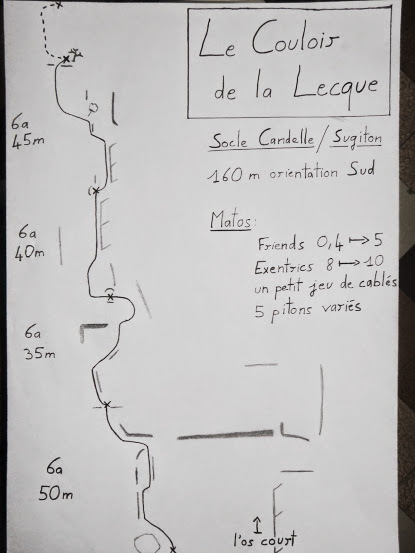 Le Couloir
de la Lecque
Socle Candelle/Sugiton
160 m orientation Sud
Matos:
Friends 0,4 ↦ 5
Exentrics 8 ↦ 10
un petit jeu de cablés
5 pitons variés
6a
45m
6a
40m
6a
35m
6a
50m
l'os court